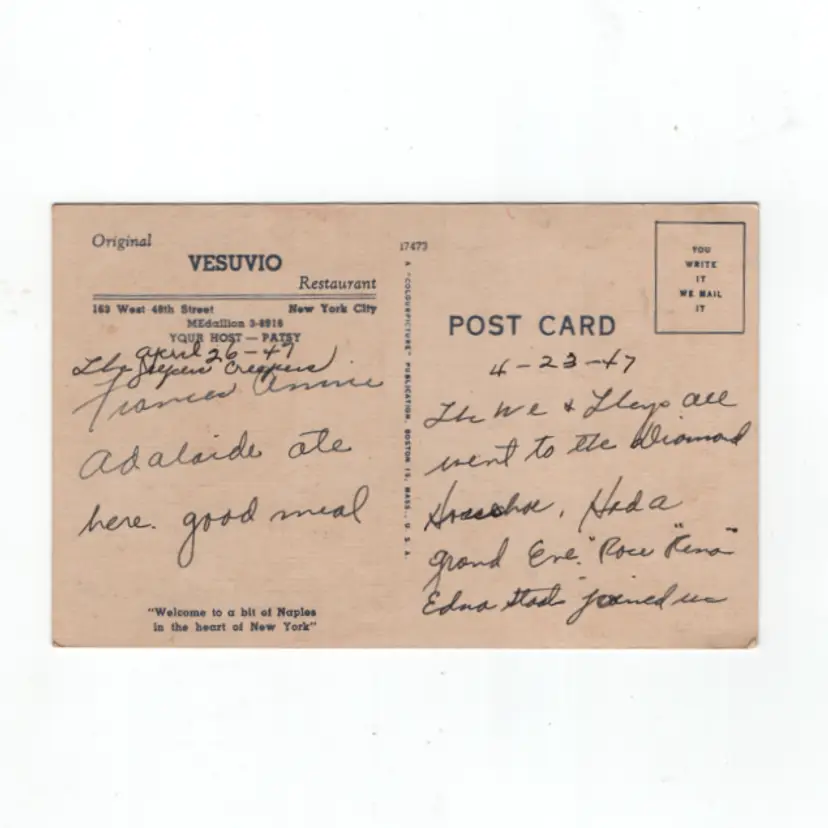 Original
VESUVIO
Restaurant
163 West 48th Street New York City
MEdallion 3-8916
YOUR HOST — PATSY
April 26-47
The Jeepers Creepers
Frances Annie
Adalaide ate
here. good meal
"Welcome to a bit of Naples
in the heart of New York"
17473
A "COLOURPICTURE" PUBLICATION, BOSTON 15, MASS., U. S. A.
YOU
WRITE
IT
WE MAIL
IT
POST CARD
4-23-47
The We & Lloyds all
went to the Diamond
Horseshoe, Had a
grand Eve. "Rose "Rena"
Edna joined us